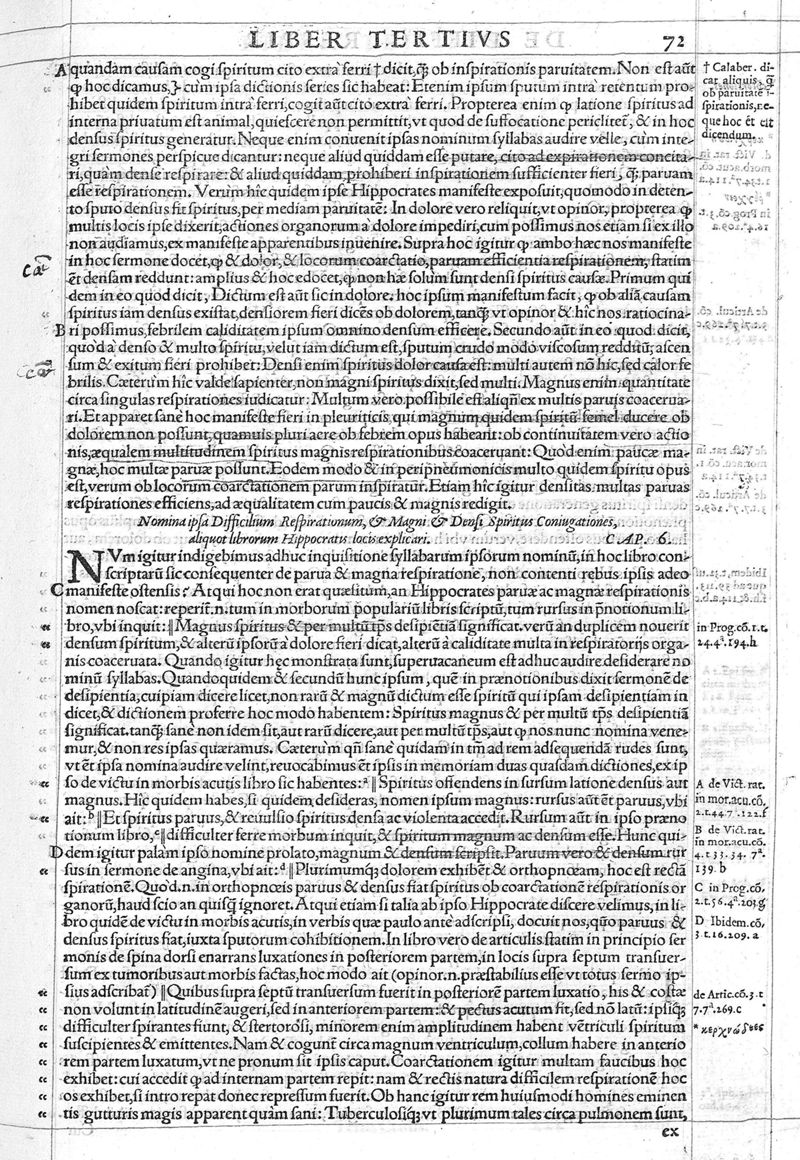 LIBER TERTIVS 72
A quandam causam cogi spiritum cito extrà ferri † dicit, q̃ ob inspirationis paruitatem. Non est aũt
ꝙ hoc dicamus,} cùm ipsa dictionis series sic habeat: Etenim ipsum sputum intrà retentum pro-
hibet quidem spiritum intrà ferri, cogit aũt cito extrà ferri. Propterea enim ꝙ latione spiritus ad
interna priuatum est animal, quiescere non permittit, vt quod de suffocatione periclitet̃, & in hoc
densus spiritus generatur. Neque enim conuenit ipsas nominum syllabas audire velle, cùm inte-
gri sermones perspicue dicantur: neque aliud quiddam esse putare, cito ad expirationem concita-
ri, quàm dense respirare: & aliud quiddam, prohiberi inspirationem sufficienter fieri, q̃; paruam
esse respirationem. Verùm hîc quidem ipse Hippocrates manifeste exposuit, quomodo in deten-
to sputo densus fit spiritus, per mediam paruitatẽ: In dolore vero reliquit, vt opinor, propterea ꝙ
multis locis ipse dixerit, actiones organorum à dolore impediri, cum possimus nos etiam si ex illo
non audiamus, ex manifeste apparentibus inuenire. Supra hoc igitur ꝙ ambo hæc nos manifeste
in hoc sermone docet, ꝙ & dolor, & locorum coarctatio, paruam efficientia respirationem, statim
ẽt densam reddunt: amplius & hoc edocet, ꝙ non hæ solùm sunt densi spiritus causæ. Primum qui
dem in eo quod dicit, Dictum est aũt sic in dolore. hoc ipsum manifestum facit, ꝙ ob aliã causam
spiritus iam densus existat, densiorem fieri dicẽs ob dolorem, tanq̃; vt opinor & hîc nos ratiocina-
B ri possimus, febrilem caliditatem ipsum omnino densum efficere. Secundo aũt in eo quod dicit,
quòd à denso & multo spiritu, velut iam dictum est, sputum crudo modo viscosum redditũ; ascen
sum & exitum fieri prohibet: Densi enim spiritus dolor causa est: multi autem nõ hîc, sed calor fe
brilis. Cæterùm hîc valde sapienter, non magni spiritus dixit, sed multi. Magnus enim quantitate
circa singulas respirationes iudicatur: Multum vero possibile est aliqñ ex multis paruis coacerua-
ri. Et apparet sanè hoc manifeste fieri in pleuriticis, qui magnum quidem spiritũ semel ducere ob
dolorem non possunt, quamuis pluri aere ob febrem opus habeant: ob continuitatem vero actio
nis, æqualem multitudinem spiritus magnis respirationibus coaceruant: Quòd enim paucæ ma-
gnæ, hoc multæ paruæ possunt. Eodem modo & in peripneumonicis multo quidem spiritu opus
est, verum ob locorum coarctationem parum inspiratur. Etiam hîc igitur densitas multas paruas
respirationes efficiens, ad æqualitatem cum paucis & magnis redigit.
Nomina ipsa Difficilium Respirationum, & Magni & Densi Spiritus Coniugationes,
aliquot librorum Hippocratis locis explicari. CAP. 6.
NVm igitur indigebimus adhuc inquisitione syllabarum ipsorum nominũ, in hoc libro con-
scriptarũ sic consequenter de parua & magna respiratione, non contenti rebus ipsis adeo
C manifeste ostensis? Atqui hoc non erat quæsitum, an Hippocrates paruæ ac magnæ respirationis
nomen noscat: reperit̃. n. tum in morborum popularium libris scriptũ, tum rursus in p̃notionum li-
bro, vbi inquit: ‖ Magnus spiritus & per multũ tp̃s desipiẽtiã significat. verũ an duplicem nouerit
densum spiritum, & alterũ ipsorũ à dolore fieri dicat, alterũ à caliditate multa in respiratorijs orga-
nis coaceruata. Quando igitur hęc monstrata sunt, superuacaneum est adhuc audire desiderare no
minũ syllabas. Quandoquidem & secundũ hunc ipsum, quẽ in prænotionibus dixit sermonẽ de
desipientia, cuipiam dicere licet, non rarũ & magnũ dictum esse spiritũ qui ipsam desipientiam in
dicet, & dictionem proferre hoc modo habentem: Spiritus magnus & per multũ tp̃s desipientiã
significat. tanq̃; sanè non idem sit, aut rarũ dicere, aut per multũ tp̃s, aut ꝙ nos nunc nomina vene-
mur, & non res ipsas quæramus. Cæterùm qñ sanè quidam in tm̃ ad rem adsequendã rudes sunt,
vt ẽt ipsa nomina audire velint, reuocabimus ẽt ipsis in memoriam duas quasdam dictiones, ex ip
so de victu in morbis acutis libro sic habentes: ª‖ Spiritus offendens in sursum latione densus aut
magnus. Hîc quidem habes, si quidem desideras, nomen ipsum magnus: rursus aũt ẽt paruus, vbi
ait: ᵇ‖ Et spiritus paruus, & reuulsio spiritus densa ac violenta accedit. Rursum aũt in ipso præno
tionum libro, ᶜ‖ difficulter ferre morbum inquit, & spiritum magnum ac densum esse. Hunc qui-
D dem igitur palam ipso nomine prolato, magnum & densum scripsit. Paruum vero & densum rur
sus in sermone de angina, vbi ait: ᵈ‖ Plurimumq́; dolorem exhibẽt & orthopnœam, hoc est rectã
spirationẽ. Quòd. n. in orthopnœis paruus & densus fiat spiritus ob coarctationẽ respirationis or
ganorũ, haud scio an quisq̃ ignoret. Atqui etiam si talia ab ipso Hippocrate discere velimus, in li-
bro quidẽ de victu in morbis acutis, in verbis quæ paulo antè adscripsi, docuit nos, quõ paruus &
densus spiritus fiat, iuxta sputorum cohibitionem. In libro vero de articulis statim in principio ser
monis de spina dorsi enarrans luxationes in posteriorem partem, in locis supra septum transuer-
sum ex tumoribus aut morbis factas, hoc modo ait (opinor. n. præstabilius esse vt totus sermo ip-
sius adscribat̃) ‖ Quibus supra septũ transuersum fuerit in posteriorẽ partem luxatio, his & costæ
non volunt in latitudinẽ augeri, sed in anteriorem partem: & pectus acutum fit, sed nõ latũ: ipsiq́;
difficulter spirantes fiunt, & stertorosi, minorem enim amplitudinem habent vẽtriculi spiritum
suscipientes & emittentes. Nam & cogunt̃ circa magnum ventriculum, collum habere in anterio
rem partem luxatum, vt ne pronum sit ipsis caput. Coarctationem igitur multam faucibus hoc
exhibet: cui accedit ꝙ ad internam partem repit: nam & rectis natura difficilem respirationẽ hoc
os exhibet, si intro repat donec repressum fuerit. Ob hanc igitur rem huiusmodi homines eminen
tis gutturis magis apparent quàm sani: Tuberculosiq́; vt plurimum tales circa pulmonem sunt,
ex
† Calaber. di-
cat aliquis, q̃
ob paruitatẽ i-
spirationis, ne-
que hoc ẽt
dicendum.
in Prog. cõ. 1. t.
24. 4ª. 194. h
A de Vict. rat.
in mor. acu. cõ.
2. t. 44. 7. 122. f
B de Vict. rat.
in mor. acu. cõ.
4. t. 33. 34. 7ª.
139. b
C in Prog. cõ.
2. t. 56. 4ª. 203. g
D Ibidem. cõ.
3 t. 16. 209. a
de Artic. cõ. 3. t
7. 7ª. 269. c
* κερχνώδεες